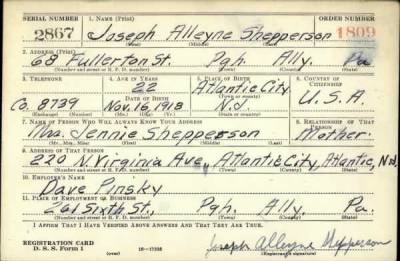 SERIAL NUMBER 1. NAME (Print) ORDER NUMBER
2867 Joseph Alleyne Shepperson 1809
(First) (Middle) (Last)
2. ADDRESS (Print)
68 Fullerton St. Pgh. Ally. Pa
(Number and street or R. F. D. number) (Town) (County) (State)
3. TELEPHONE 4. AGE IN YEARS 5. PLACE OF BIRTH 6. COUNTRY OF CITIZENSHIP
22 Atlantic City
(Town or county)
Co. 8739 DATE OF BIRTH
Nov. 16, 1918 N.J. U.S.A
(Exchange) (Number) (Mo.) (Day) (Yr.) (State or country)
7. NAME OF PERSON WHO WILL ALWAYS KNOW YOUR ADDRESS 8. RELATIONSHIP OF THAT PERSON
Mrs. Jennie Shepperson Mother.
(Mr., Mrs., Miss) (First) (Middle) (Last)
9. ADDRESS OF THAT PERSON
220 N. Virginia Ave., Atlantic City, Atlantic, N.J.
(Number and street or R. F. D. number) (Town) (County) (State)
10. EMPLOYER'S NAME
Dave Pinsky
11. PLACE OF EMPLOYMENT OR BUSINESS
261 Sixth St., Pgh. Ally. Pa.
(Number and street or R. F. D. number) (Town) (County) (State)
I AFFIRM THAT I HAVE VERIFIED ABOVE ANSWERS AND THAT THEY ARE TRUE.
REGISTRATION CARD
D. S. S. Form 1 16—17105 Joseph Alleyne Shepperson
(over) (Registrant's signature)